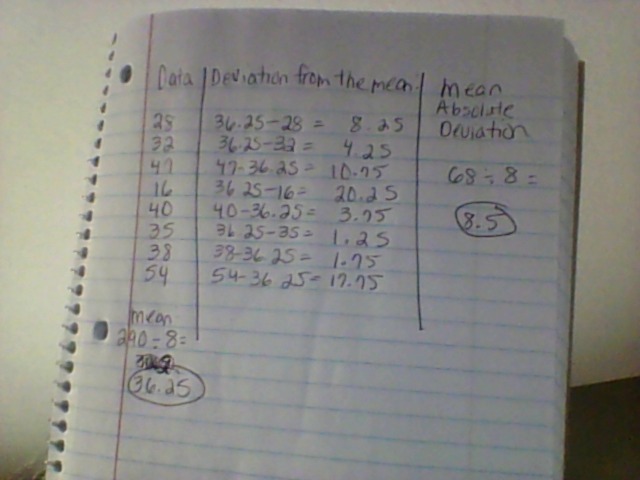 Data Deviation from the mean. Mean
Absolute
Deviation
28 36.25-28 = 8.25
32 36.25-32 = 4.25
47 47-36.25 = 10.75
68 ÷ 8 =
16 36.25-16 = 20.25
40 40-36.25 = 3.75
8.5
35 36.25-35 = 1.25
38 38-36.25 = 1.75
54 54-36.25 = 17.75
mean
290 ÷ 8 =
36.25